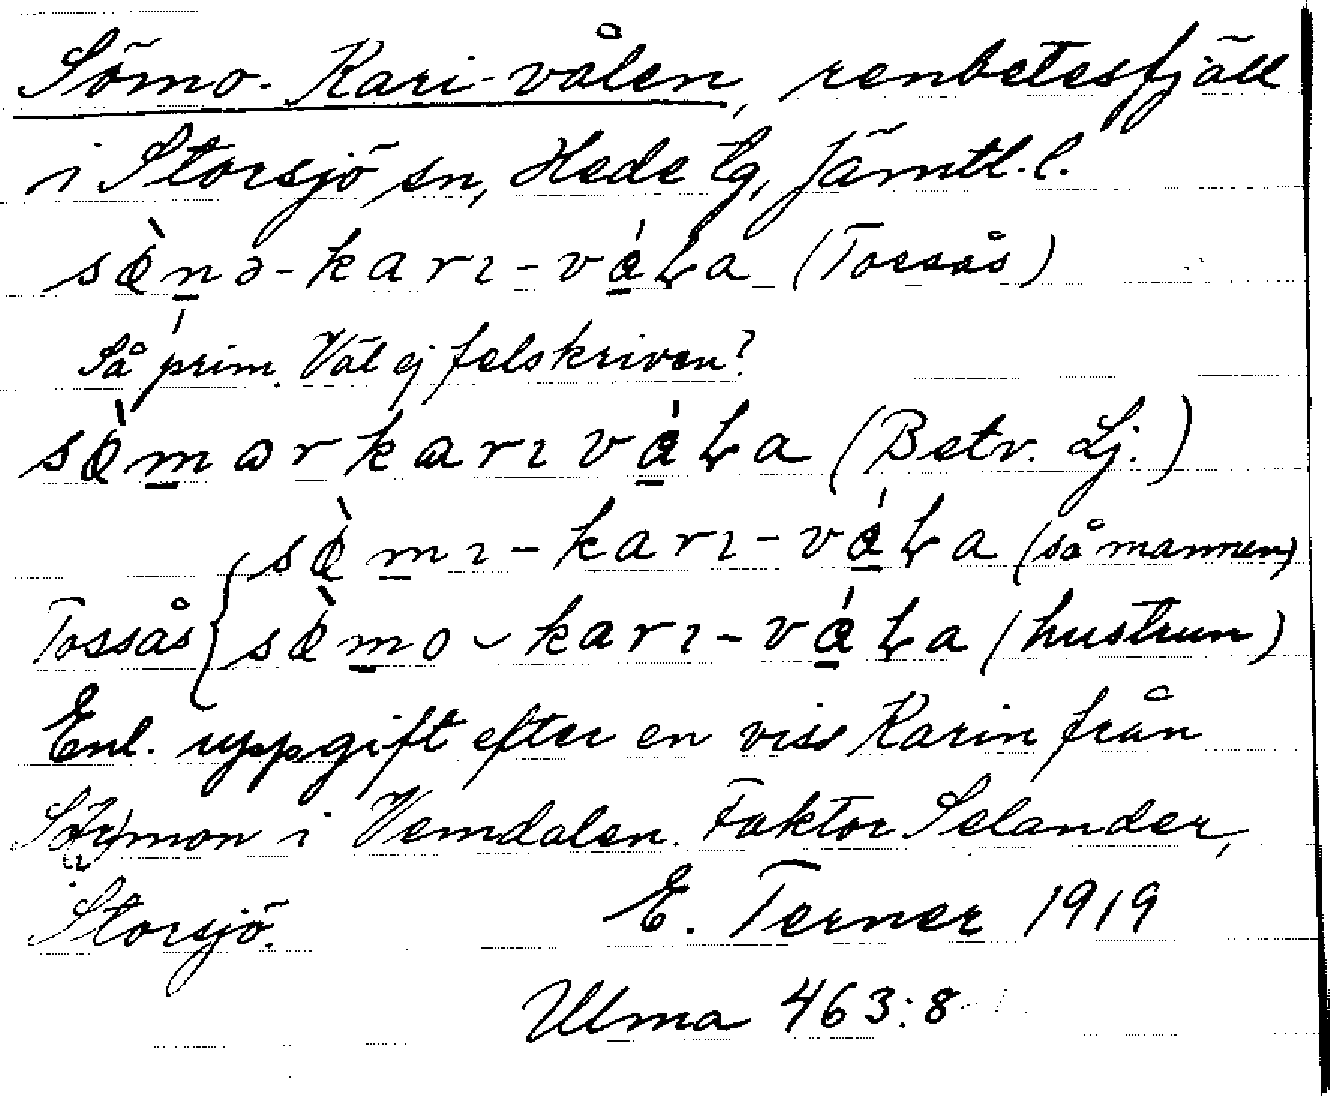 Sömo-Kari-vålen, renbetesfjäll
i Storsjö sn, Hede tg, Jämtl. l.
sæ̀nə-karı-vǻLa (Tossås)
Så prim. Väl ej felskriven?
sæ̀mərkarıvǻLa (Betv. Lj.)
sæ̀mı-karı-vǻLa (så mannen)
Tossås { sæ̀mo-karı-vǻLa (hustrun)
Enl. uppgift efter en viss Karin från
mon i Vemdalen. Faktor Selander,
Storsjö. E. Terner 1919
Ulma 463:8